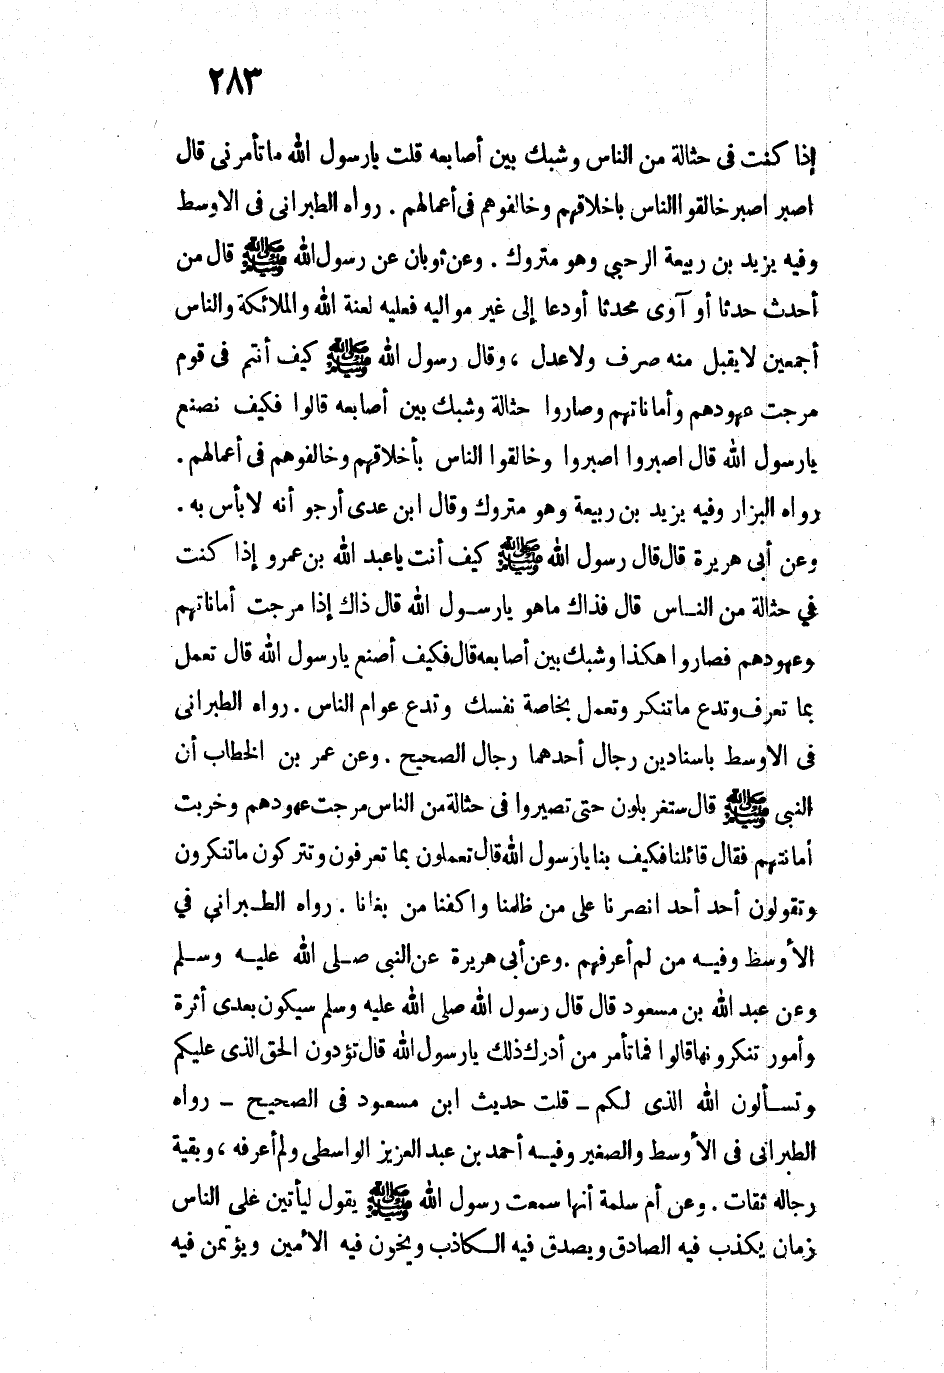 ٢٨٣
إذا كنت فى حثالة من الناس وشبك بين أصابعه قلت يارسول الله ماتأمرنى قال
اصبر اصبر خالقوا الناس باخلاقهم وخالفوهم فى أعمالهم . رواه الطبرانى فى الاوسط
وفيه يزيد بن ربيعة الرحبي وهو متروك . وعن ثوبان عن رسول الله ﷺ قال من
أحدث حدثا أو آوى محدثا أودعا إلى غير مواليه فعليه لعنة الله والملائكة والناس
أجمعين لايقبل منه صرف ولاعدل ، وقال رسول الله ﷺ كيف أنتم فى قوم
مرجت عهودهم وأماناتهم وصاروا حثالة وشبك بين أصابعه قالوا فكيف نصنع
يارسول الله قال اصبروا اصبروا وخالقوا الناس بأخلاقهم وخالفوهم فى أعمالهم .
رواه البزار وفيه يزيد بن ربيعة وهو متروك وقال ابن عدى أرجو أنه لابأس به .
وعن أبى هريرة قال قال رسول الله ﷺ كيف أنت ياعبد الله بن عمرو إذا كنت
في حثالة من النـاس قال فذاك ماهو يارسـول الله قال ذاك إذا مرجت أماناتهم
وعهودهم فصاروا هكذا وشبك بين أصابعه قال فكيف أصنع يارسول الله قال تعمل
بما تعرف وتدع ماتنكر وتعمل بخاصة نفسك وتدع عوام الناس . رواه الطبرانى
فى الاوسط باسنادين رجال أحدهما رجال الصحيح . وعن عمر بن الخطاب أن
النبى ﷺ قال ستغربلون حتى تصيروا فى حثالة من الناس مرجت عهودهم وخربت
أمانتهم فقال قائلنا فكيف بنا يارسول الله قال تعملون بما تعرفون وتتركون ماتنكرون
وتقولون أحد أحد انصرنا على من ظلمنا واكفنا من بغانا . رواه الطـبراني في
الأوسط وفيـه من لم أعرفهم . وعن أبى هريرة عن النبى صـلى الله عليـه وسـلم
وعن عبد الله بن مسعود قال قال رسول الله صلى الله عليه وسلم سيكون بعدى أثرة
وأمور تنكرونها قالوا فما تأمر من أدرك ذلك يارسول الله قال تؤدون الحق الذى عليكم
وتسـألون الله الذى لكم ـ قلت حديث ابن مسعود فى الصحيح ـ رواه
الطبرانى فى الأوسط والصغير وفيـه أحمد بن عبد العزيز الواسطى ولم أعرفه ، وبقية
رجاله ثقات . وعن أم سلمة أنها سمعت رسول الله ﷺ يقول ليأتين على الناس
زمان يكذب فيه الصادق ويصدق فيه الـكاذب ويخون فيه الأمين ويؤتمن فيه